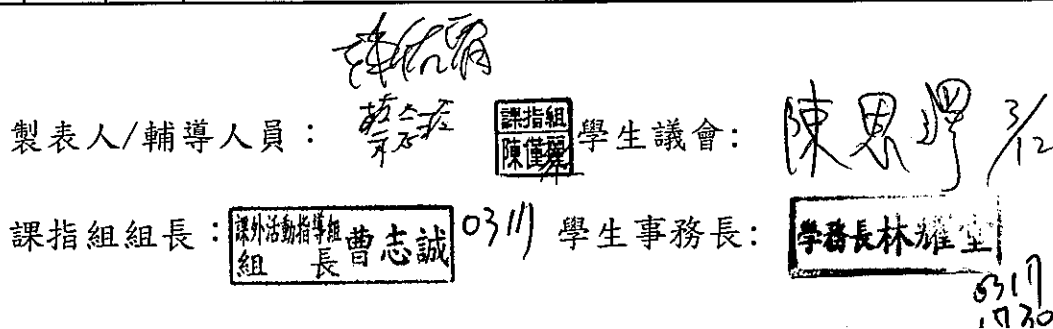 製表人/輔導人員：
課指組
陳僅麗
學生議會:
陳思
3/12
課指組組長：
課外活動指導組
組 長
曹志誠
0317
學生事務長:
學務長林耀堂
0317
1730